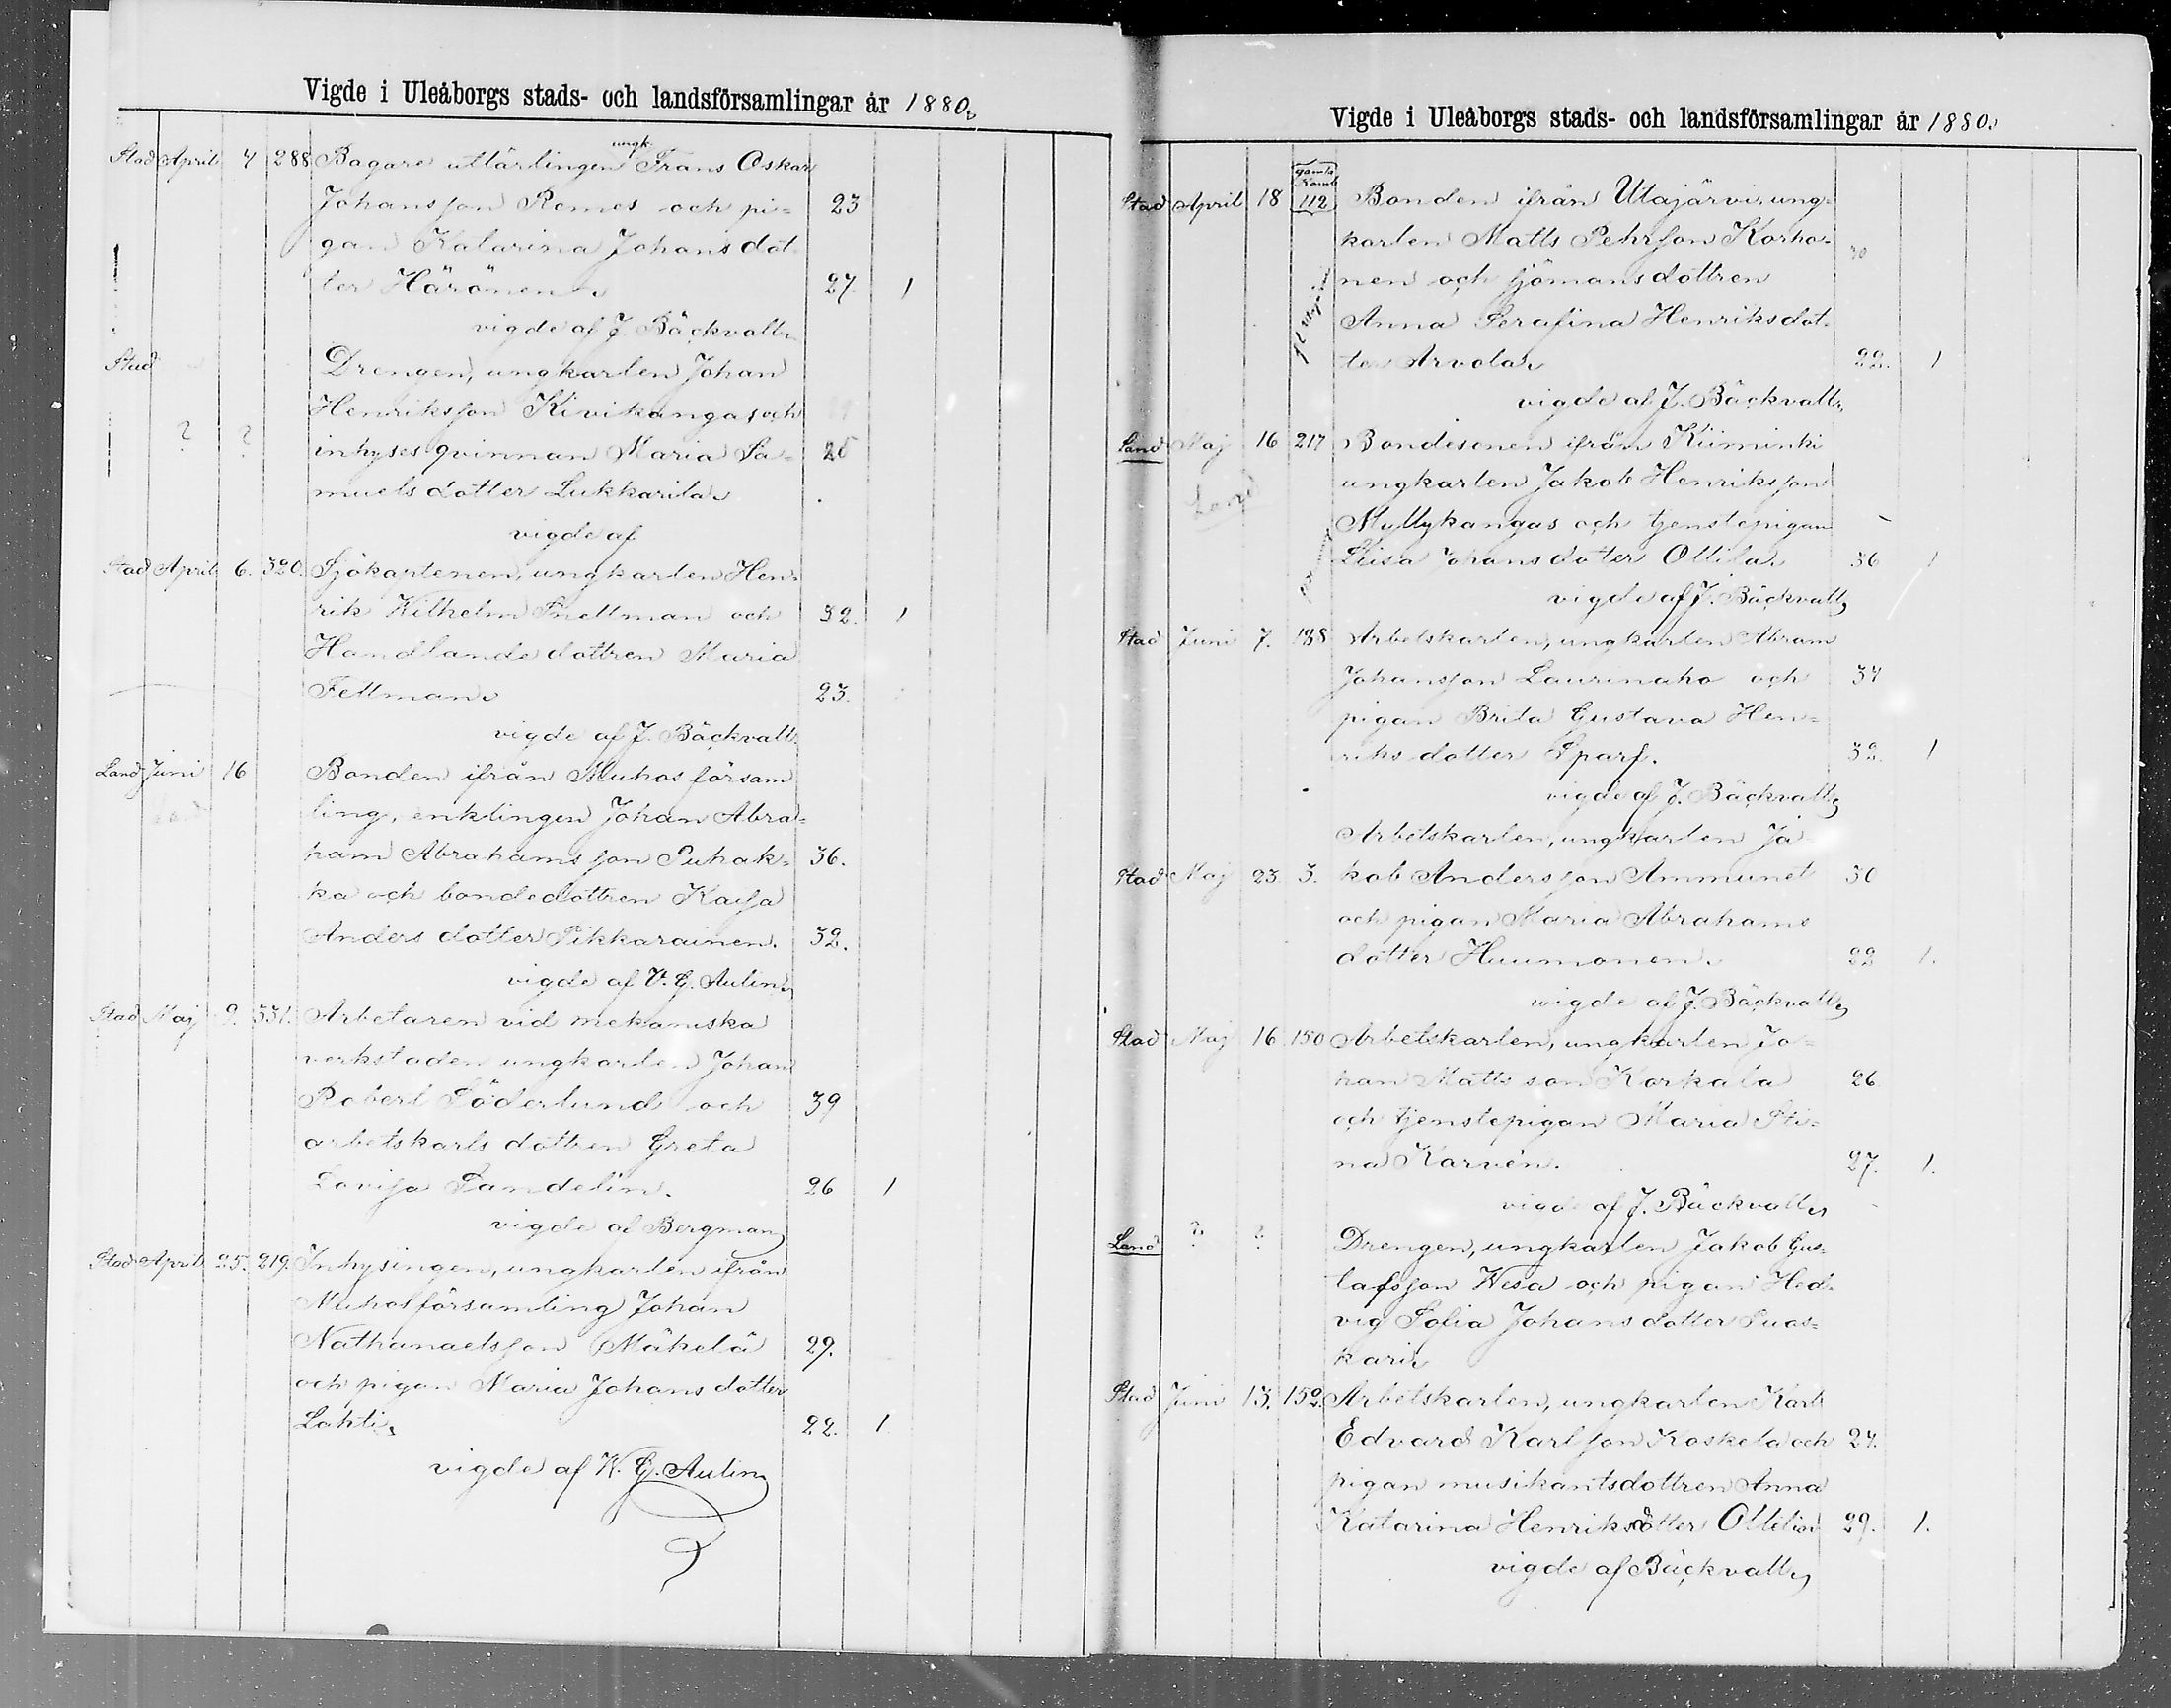 Vigde i Uleåborgs stads- och landsförsamlingar år 1880.
ungk.
Stad April 4 288 Bagare utlärlingen Frans Oskar
Johansson Remes och pi= 23
gan Katarina Johansdot
ter Härönen. 27 1
vigde af J. Bäckvall.
Stad Drengen, ungkarlen Johan
Henriksson Kivikangas och
? ? inhyses qvinnan Maria Sa=
muels dotter Lukkarila.
vigde af
Stad April 6. 320. Sjökaptenen, ungkarlen Hen=
rik Wilhelm Snellman och 32. 1
Handlande dottren Maria
Fellman. 23.
vigde af J. Bäckvall.
Land Juni 16 Bonden ifrån Muhos försam
ling, enklingen Johan Abra=
ham Abrahams son Puhak= 36.
ka och bondedottren Kaisa
Anders dotter Pikkarainen. 32.
vigde af V. G. Aulin.
Stad Maj 9. 331. Arbetaren vid mekaniska
verkstaden ungkarlen Johan
Robert Söderlund och 39
arbetskarls dottren Greta
Lovisa Sandelin. 26 1
vigde af Bergman
Stad April 25. 219. Inhysingen, ungkarlen ifrån
Muhos församling Johan
Nathanaelsson Mäkelä 29.
och pigan Maria Johans dotter
Lahti. 22. 1
vigde af W. G. Aulin
Vigde i Uleåborgs stads- och landsförsamlingar år 1880.
gamla
Komb
Stad April 18 112 Bonden ifrån Utajärvi, ung=
karlen Matts Pehrson Korho= 30
nen och sjömans dottren
Anna Serafina Henriksdot=
ter Arvola. 22. 1
vigde af J. Bäckvall.
Land Maj 16 217 Bondesonen ifrån Kiiminki
ungkarlen Jakob Henriksson
Land
Myllykangas och tjenstepigan
Liisa Johans dotter Ollila. 36 1
vigde af J. Bäckvall
Stad Juni 7. 188 Arbetskarlen, ungkarlen Abram
Johansson Laurinaho och 34
pigan Brita Gustava Hen=
riks dotter Sparf. 32. 1
vigde af J. Bäckvall
Arbetskarlen, ungkarlen Ja
Stad Maj 23. 3. kob Andersson Ammunet 30
och pigan Maria Abrahams
dotter Huumonen. 22 1.
wigde af J. Bäckvall
Stad Maj 16 150 Arbetskarlen, ungkarlen Jo=
han Matts son Korkala 26
och tjenstepigan Maria Sti=
na Karvén. 27. 1.
vigde af J. Bäckvall
Land ? ? Drengen, ungkarlen Jakob Gus=
tafsson Wesa och pigan Hed=
vig Sofia Johans dotter Suas=
kari.
Stad Juni 13. 152. Arbetskarlen, ungkarlen Karl
Edvard Karlsson Koskela och 24.
pigan musikantsdottren Anna
Katarina Henriksdotter 29. 1.
vigde af Bäckvall